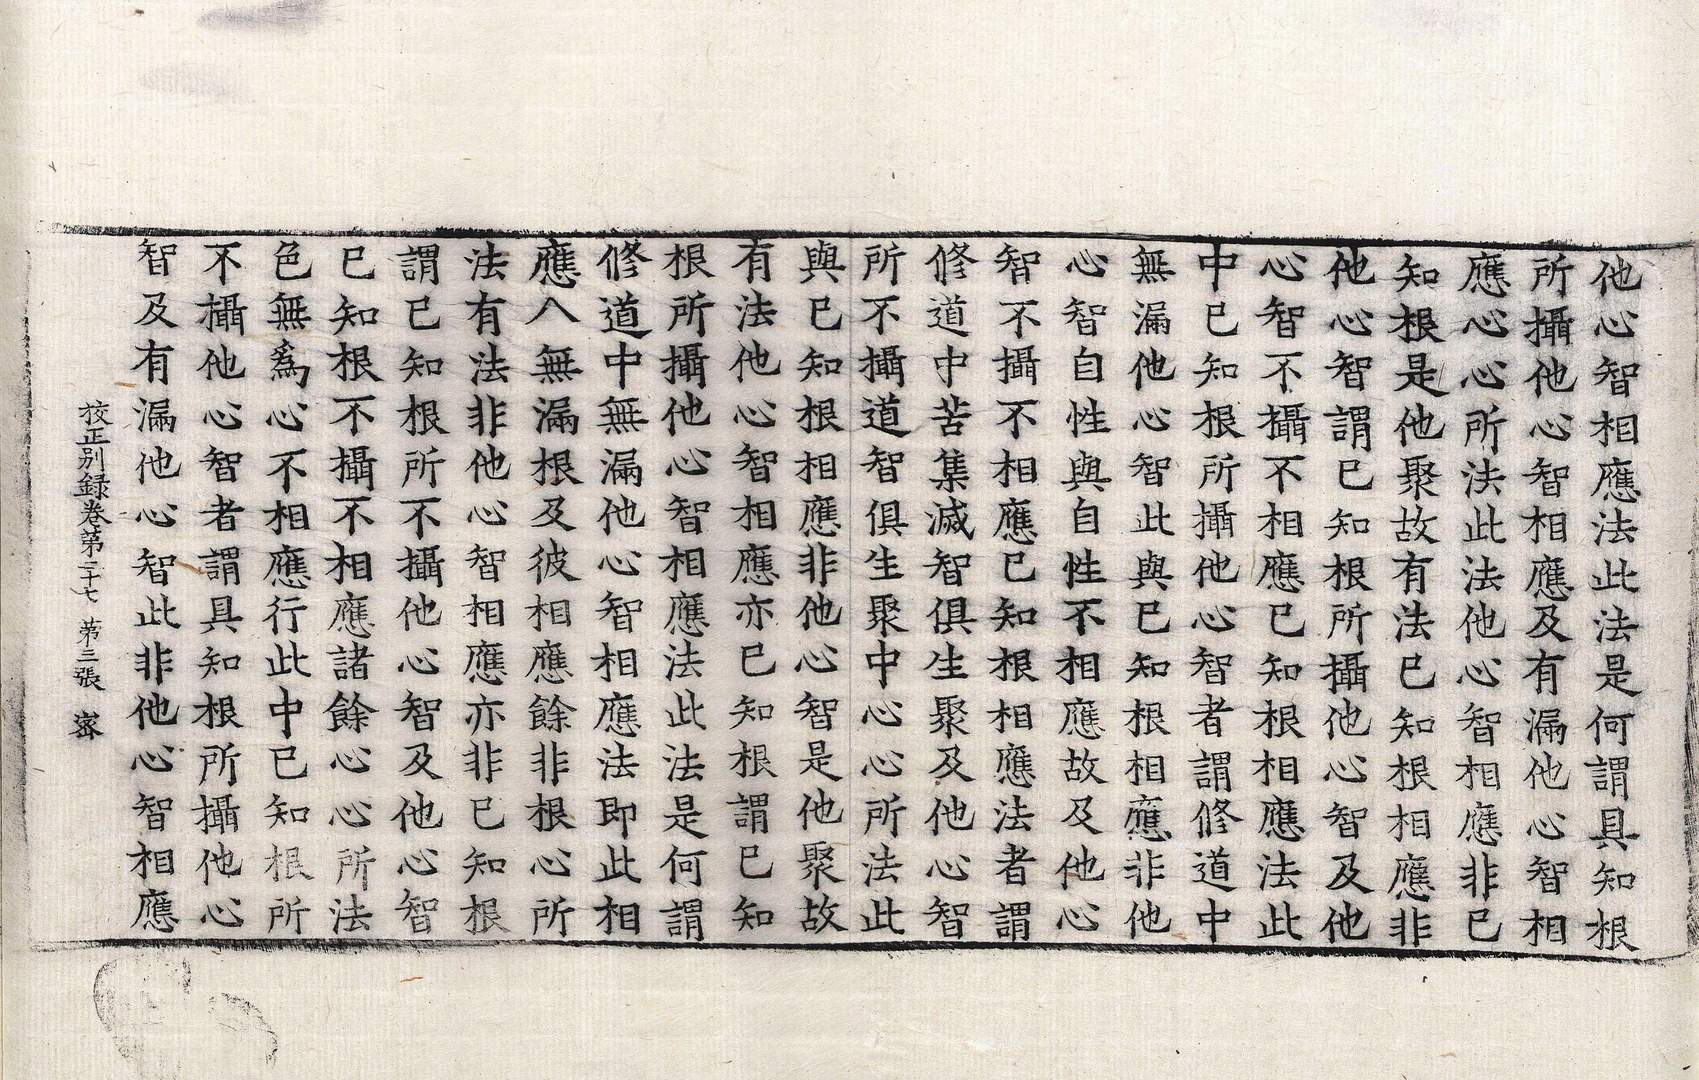 他心智相應法此法是何謂具知根
所攝他心智相應及有漏他心智相
應心心所法此法他心智相應非已
知根是他聚故有法已知根相應非
他心智謂已知根所攝他心智及他
心智不攝不相應已知根相應法此
中已知根所攝他心智者謂修道中
無漏他心智此與已知根相應非他
心智自性與自性不相應故及他心
智不攝不相應已知根相應法者謂
修道中苦集滅智俱生聚及他心智
所不攝道智俱生聚中心心所法此
與已知根相應非他心智是他聚故
有法他心智相應亦已知根謂已知
根所攝他心智相應法此法是何謂
修道中無漏他心智相應法即此相
應八無漏根及彼相應餘非根心所
法有法非他心智相應亦非已知根
謂已知根所不攝他心智及他心智
已知根不攝不相應諸餘心心所法
色無為心不相應行此中已知根所
不攝他心智者謂具知根所攝他心
智及有漏他心智此非他心智相應
校正別録卷第二十七 第三張 密